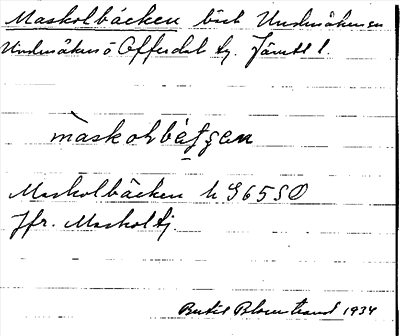 Maskolbäcken bäck Undersåkersen
Undersåkers ö Offerdal tg. Jämtl l.
màskol₍bèt̯ʃen
Maskolbäcken h 965 SO
Jfr. Maskoltj
Bertil Blomstrand 1934